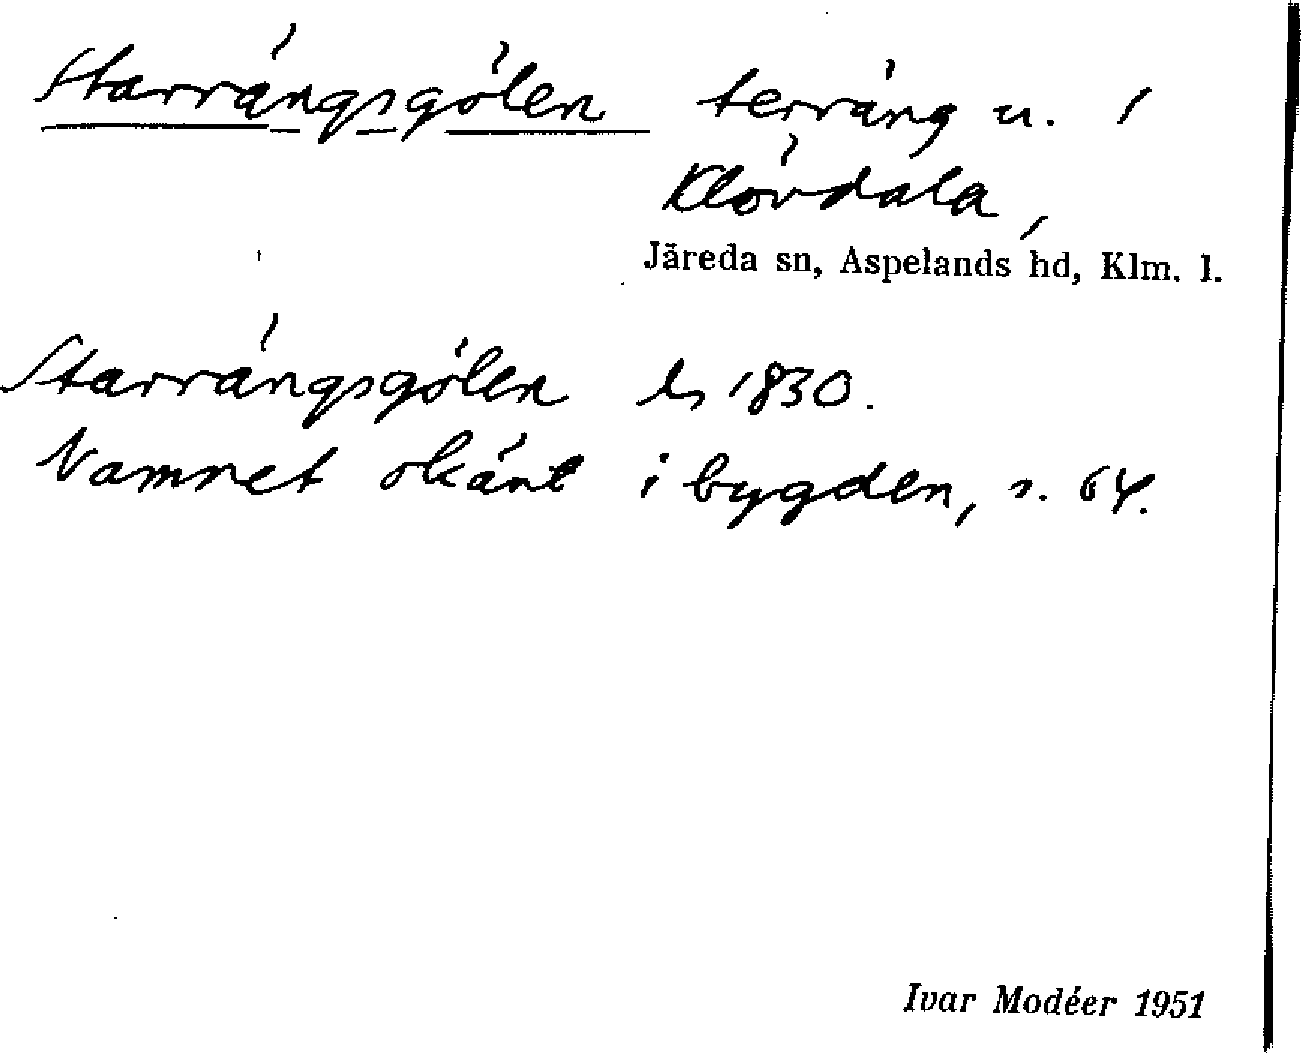 Starrängsgölen terräng u. 1
Klövdala,
Järeda sn, Aspelands hd, Klm. l.
Starrängsgölen ls 1830.
Namnet okänt i bygden, s. 64.
Ivar Modéer 1951